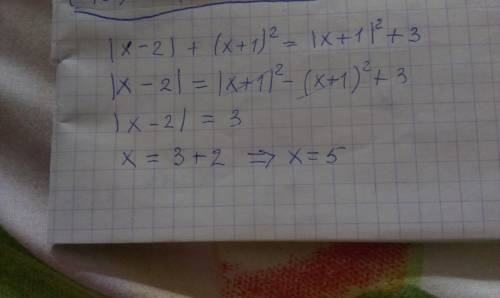 |x-2| + (x+1)² = |x+1|² + 3
|x-2| = |x+1|² - (x+1)² + 3
|x-2| = 3
x = 3+2 ⇒ x=5